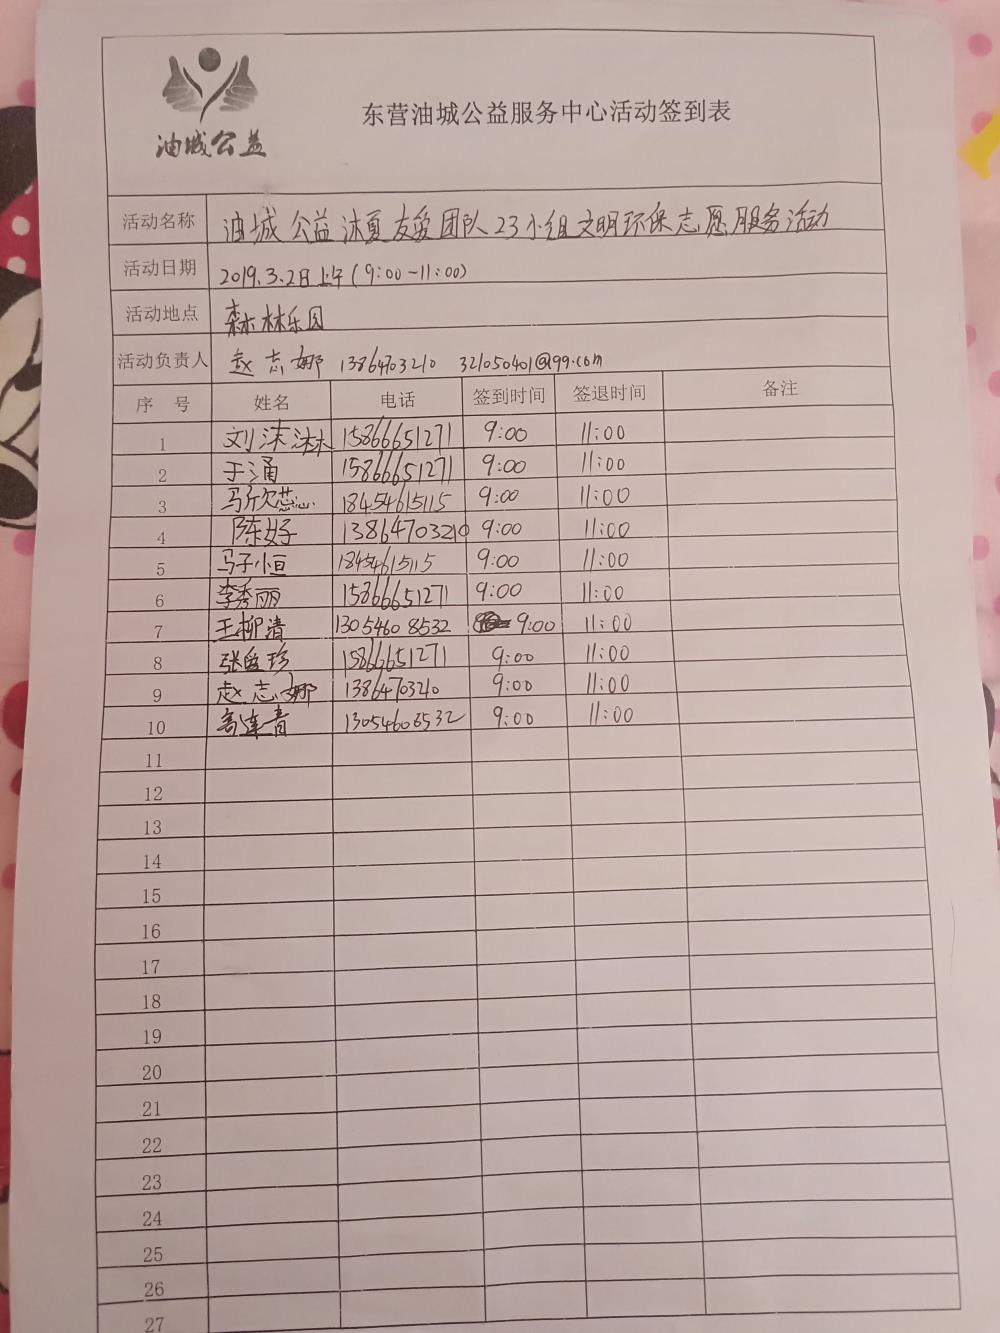 油城公益
东营油城公益服务中心活动签到表
活动名称 油城公益沐夏友爱团队23小组文明环保志愿服务活动
活动日期 2019.3.2日上午(9:00-11:00)
活动地点 森林乐园
活动负责人 赵志娜 13864703210 321050401@qq.com
序 号 姓名 电话 签到时间 签退时间 备注
1 刘沫沐 15866651271 9:00 11:00
2 于涌 15866651271 9:00 11:00
3 马欣蕊 18454615115 9:00 11:00
4 陈好 13864703210 9:00 11:00
5 马子恒 18454615115 9:00 11:00
6 李秀丽 15866651271 9:00 11:00
7 王柳清 13054608532 9:00 11:00
8 张爱珍 15866651271 9:00 11:00
9 赵志娜 13864703210 9:00 11:00
10 高莲青 13054608532 9:00 11:00
11
12
13
14
15
16
17
18
19
20
21
22
23
24
25
26
27